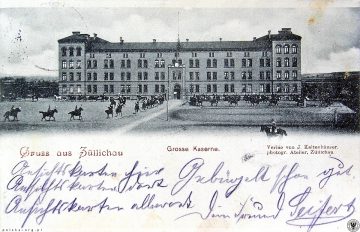 Gruss aus Züllichau
Grosse Kaserne.
Verlag von J. Kaltenhäuser,
photogr. Atelier, Züllichau.
Ansichtskarten hier
Ansichtskarten dort
Ansichtskarten allerort
schon gut,
Dein Freund Seifert
polska-org.pl